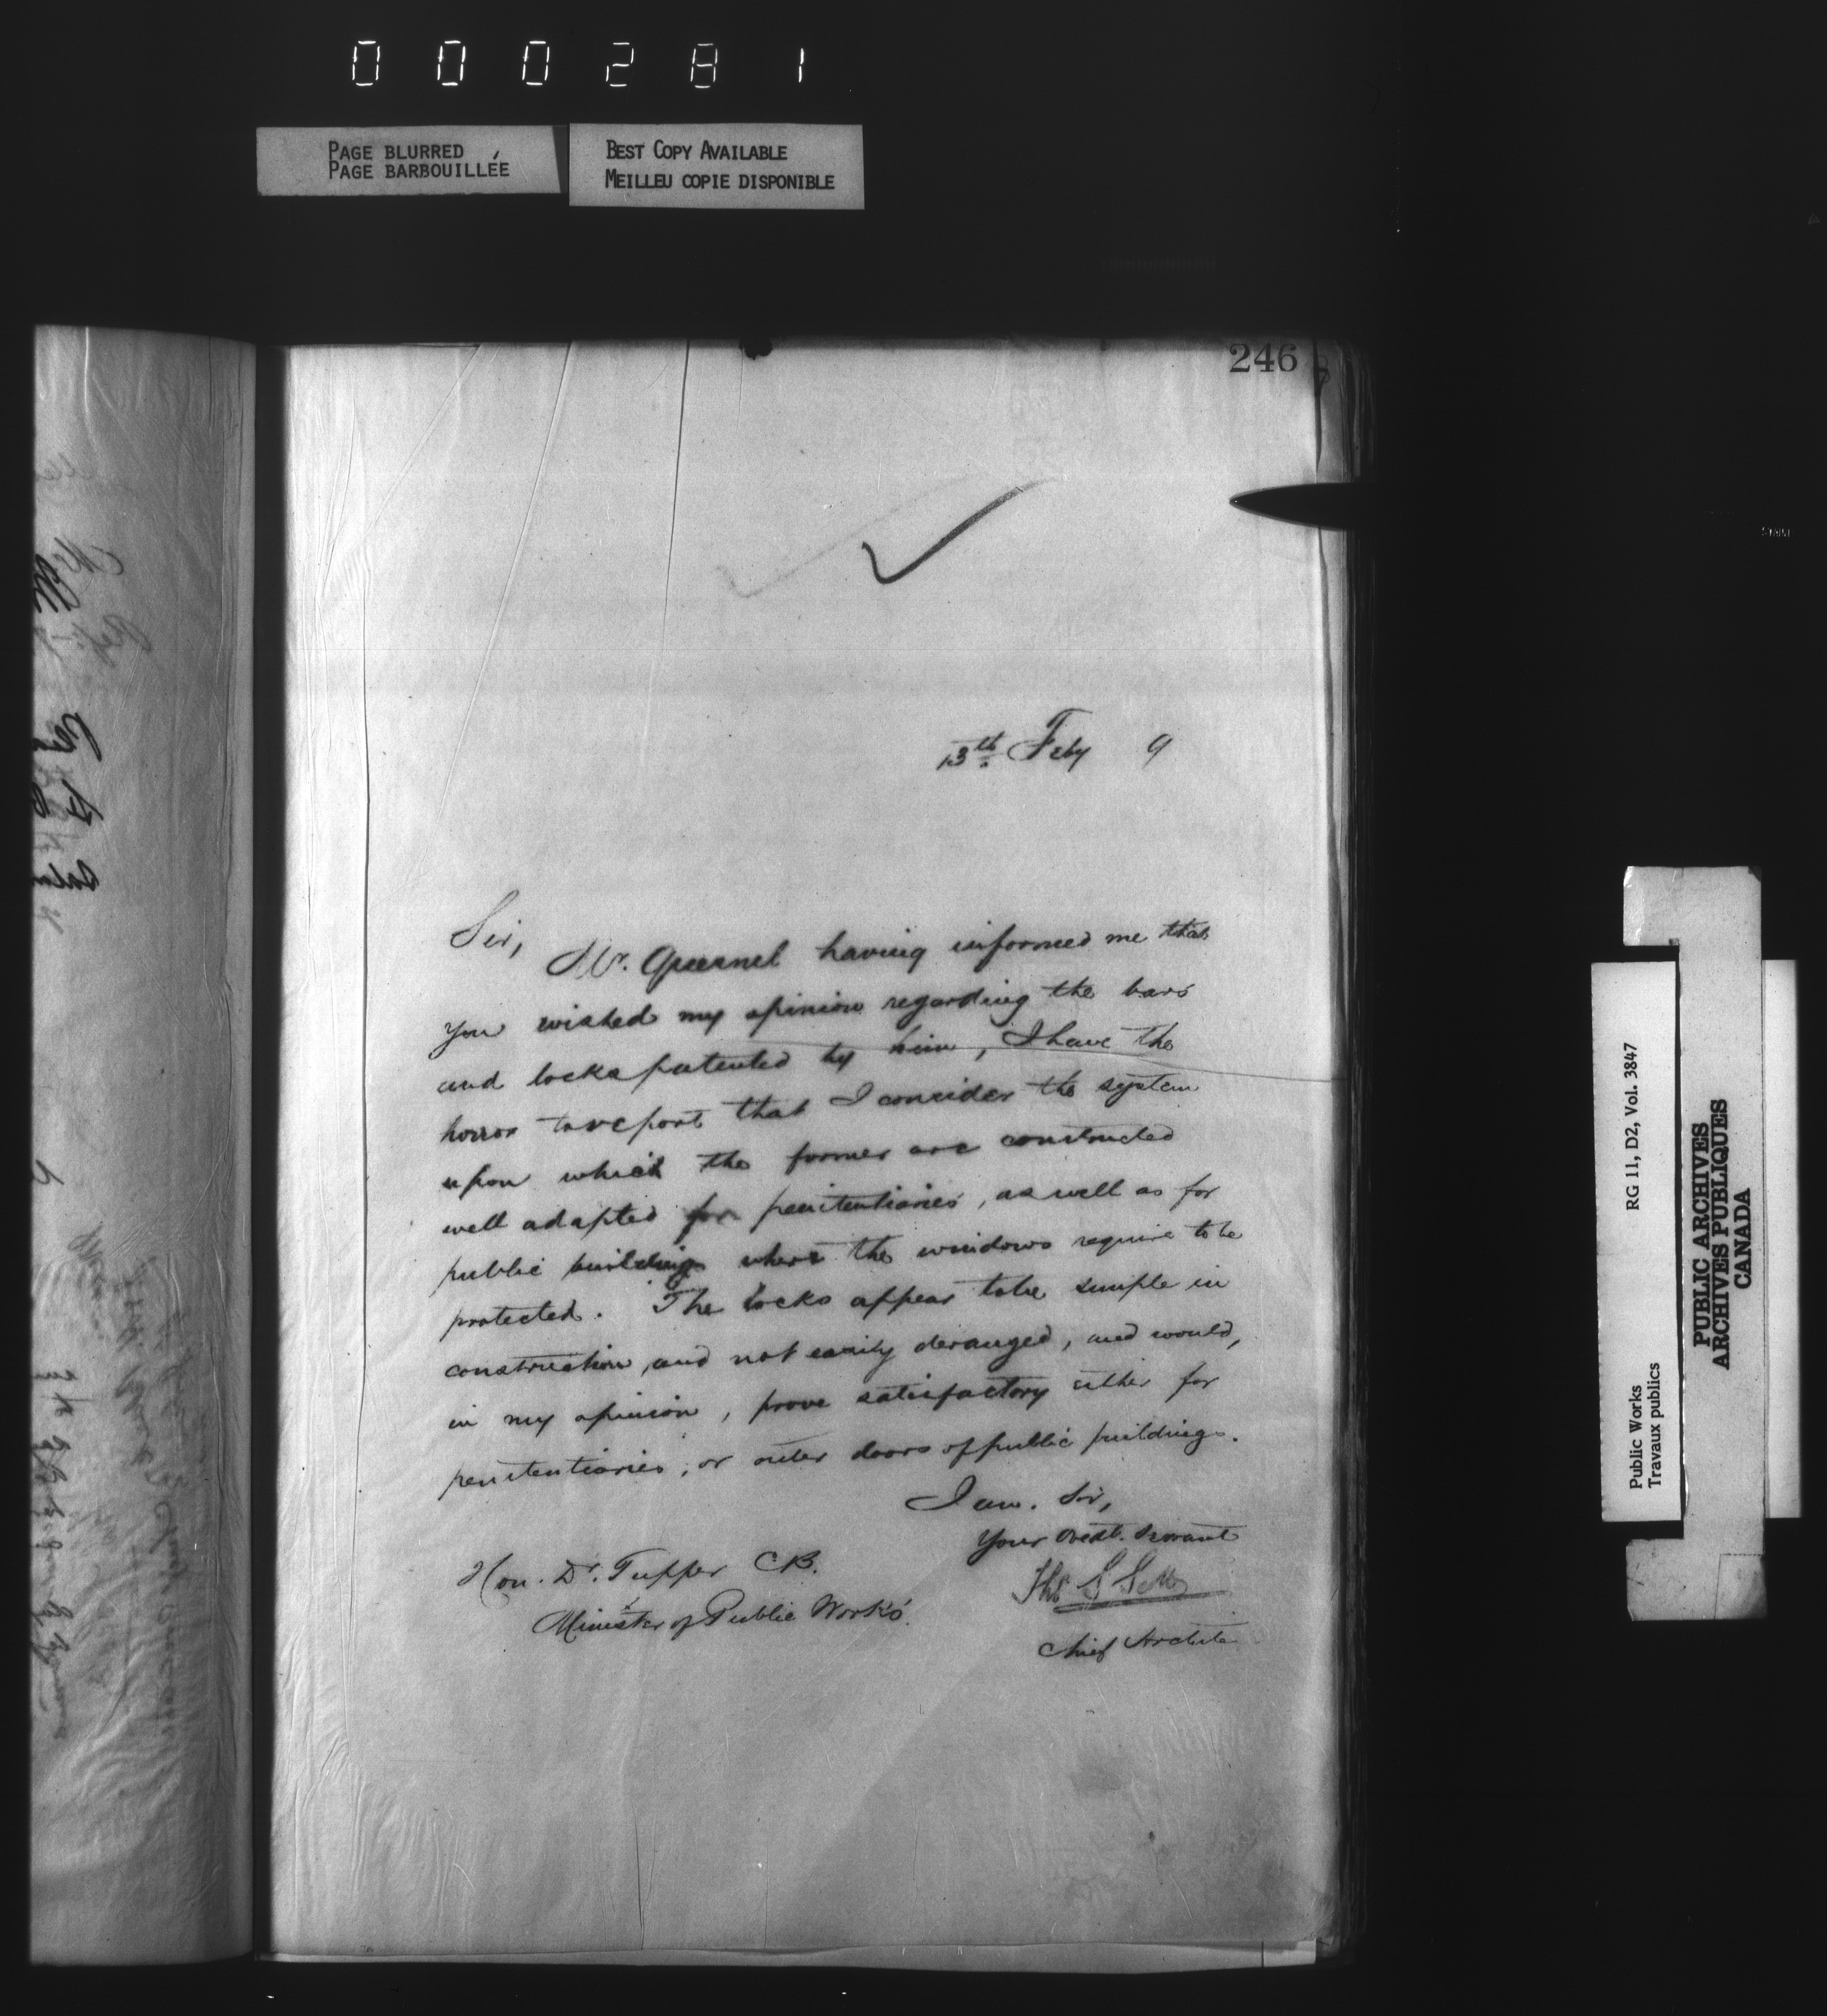 000281
PAGE BLURRED
PAGE BARBOUILLÉE
BEST COPY AVAILABLE
MEILLEU COPIE DISPONIBLE
246
13th Feby 9
Sir,
Mr. Quesnel having informed me that
you wished my opinion regarding the bars
and locks patented by him, I have the
honor to report that I consider the system
upon which the former are constructed
well adapted for penitentiaries, as well as for
public buildings where the windows require to be
protected. The locks appear to be simple in
construction, and not easily deranged, and would,
in my opinion, prove satisfactory either for
penitentiaries, or outer doors of public buildings.
I am. Sir,
Your Obedt. Servant
Thos S Scott
Chief Archite
Hon. Dr. Tupper CB.
Minister of Public Works.
Public Works RG 11, D2, Vol. 3847
Travaux publics
PUBLIC ARCHIVES
ARCHIVES PUBLIQUES
CANADA